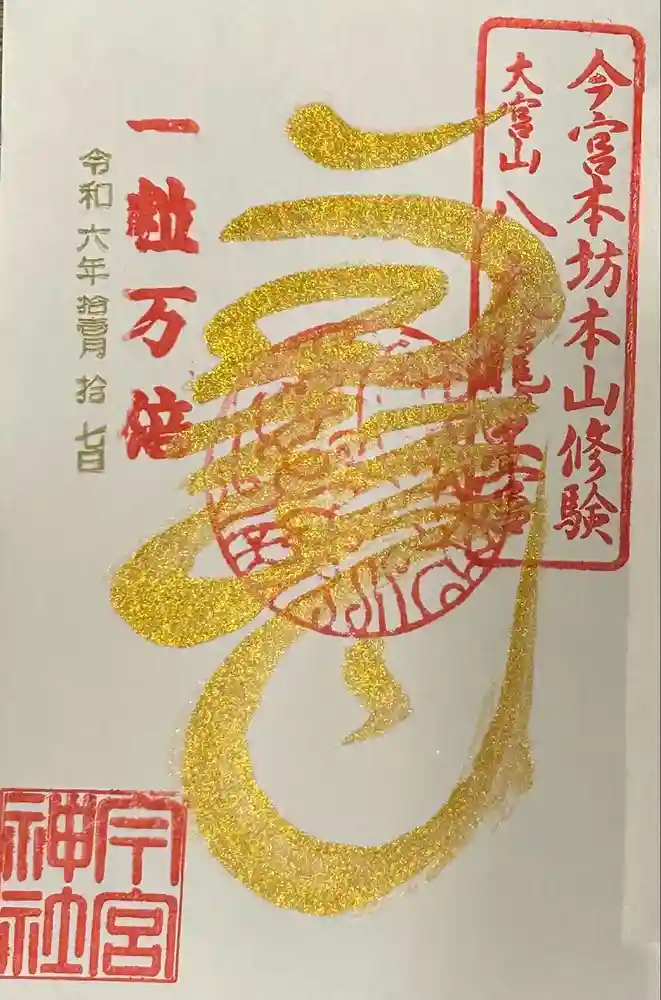 今宮本坊本山修験
大宮山 八大龍王宮
一粒万倍
令和六年拾壹月拾七日
今宮
神社